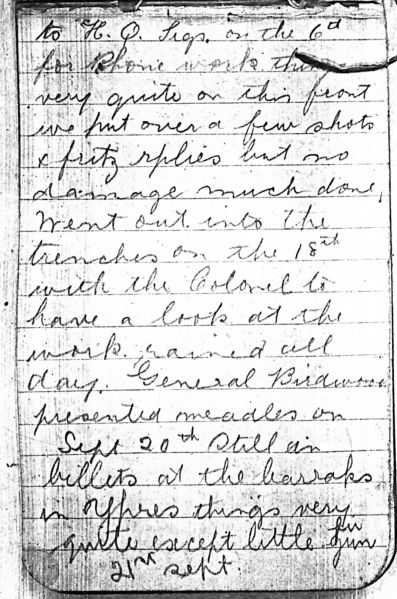 to H. Q. Sigs. on the 6th
for Phone work things
very quite on this front
we put over a few shots
& fritz rplies but no
damage much done,
Went out into the
trenches on the 18th
with the Colonel to
have a look at the
work, rained all
day. General Birdwood
presented meadles on
Sept 20th Still in
billets at the barraks
in Yppres things very
quite except little gun
21st Sept.